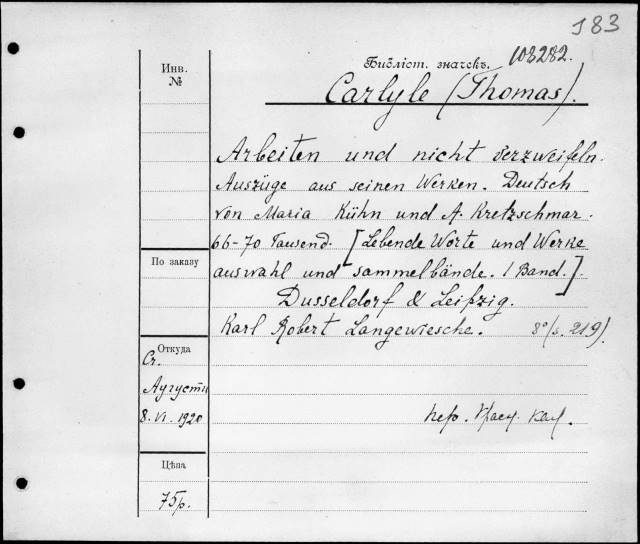 183
Библіот. значекъ. 108282.
Инв.
№
Carlyle (Thomas).
Arbeiten und nicht verzweifeln.
Auszüge aus seinen Werken. Deutsch
von Maria Kühn und A. Kretzschmar.
66-70 Tausend. [Lebende Worte und Werke
auswahl und sammelbände. 1 Band.].
По заказу
Dusseldorf & Leipzig.
Karl Robert Langewiesche. 8°/s. 219)
Откуда
Ст.
Августи
8.VI.1920
пер.
Цѣна
75р.